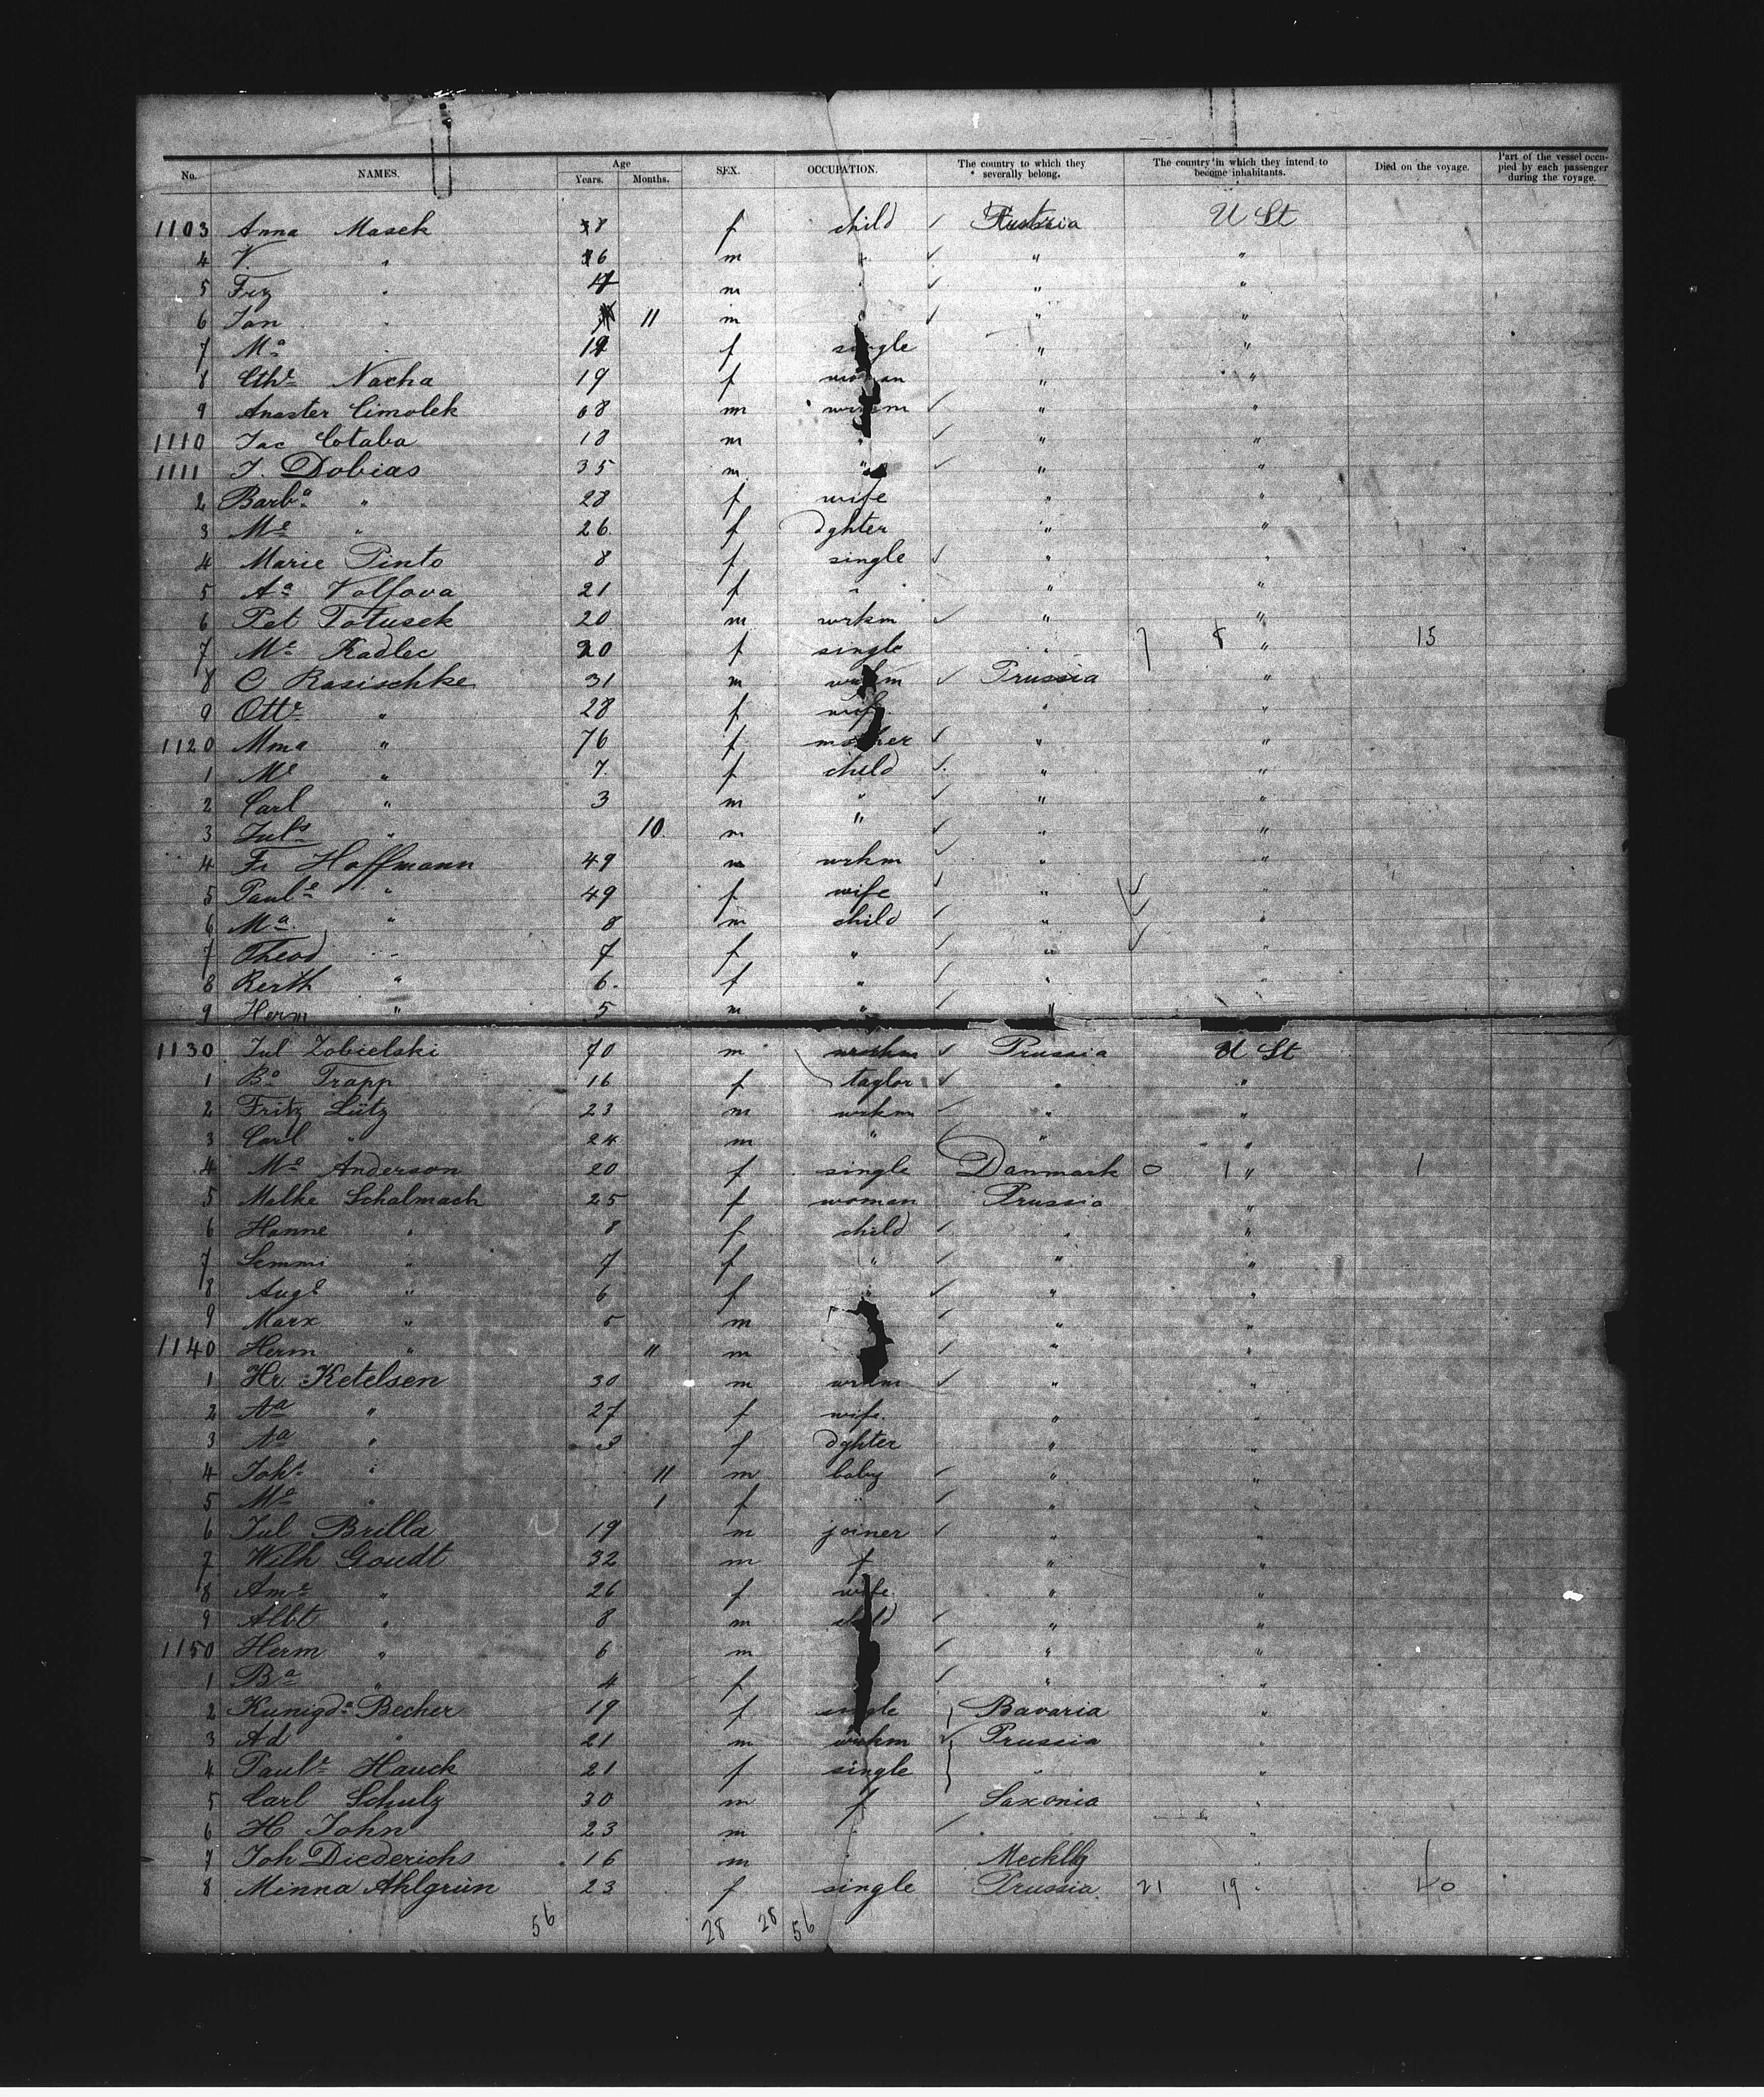 No. NAMES. Age Years. Months. SEX. OCCUPATION. The country to which they severally belong. The country in which they intend to become inhabitants. Died on the voyage. Part of the vessel occupied by each passenger during the voyage.
1103 Anna Masek 8 f child ✓ Austria U St
4 V. " 6 m " ✓ " "
5 Frz " 4 m " ✓ " "
6 Jan " 11 m " ✓ " "
7 Ma " 19 f single " "
8 Cthe Nacha 19 f woman " "
9 Anaster Cimolek 68 m wrkm ✓ " "
1110 Jac Cotaba 18 m " ✓ " "
1111 J. Dobias 35 m " ✓ " "
2 Barba " 28 f wife " "
3 Me " 26 f dghter " "
4 Marie Pinto 8 f single ✓ " "
5 Aa Volfova 21 f " " "
6 Pet Totusek 20 m wrkm ✓ " "
7 Me Kadlec 20 f single " 7 8 " 15
8 C Rasischke 31 m wrkm ✓ Prussia "
9 Otte " 28 f wife " "
1120 Mma " 76 f mother ✓ " "
1 Me " 7 f child ✓ " "
2 Carl " 3 m " ✓ " "
3 Juls " 10 m " ✓ " "
4 Fr Hoffmann 49 m wrkm ✓ " "
5 Paule " 49 f wife ✓ " ✓ "
6 Ma " 8 m child ✓ " ✓ "
7 Theod " 7 f " ✓ " ✓ "
8 Berth " 6 f " ✓ " "
9 Herm " 5 m " ✓ "
1130 Jul Zobielski 70 m wrkm ✓ Prussia U St
1 Ba Trapp 16 f taylor ✓ " "
2 Fritz Lütz 23 m wrkm ✓ " "
3 Carl " 24 m " " "
4 Me Anderson 20 f single Danmark 0 1 " 1
5 Malke Schalmach 25 f woman Prussia "
6 Hanne " 8 f child ✓ " "
7 Semmi " 7 f " ✓ " "
8 Auge " 6 f " ✓ " "
9 Marx " 5 m ✓ " "
1140 Herm " 11 m ✓ " "
1 Hr Ketelsen 30 m wrkm ✓ " "
2 Aa " 27 f wife " "
3 Aa " 3 f dghter " "
4 Johs " 11 m baby ✓ " "
5 Ma " 1 f " ✓ " "
6 Jul Brilla 19 m joiner ✓ " "
7 Wilh Goudt 32 m f " "
8 Ame " 26 f wife " "
9 Albt " 8 m child ✓ " "
1150 Herm " 6 m ✓ " "
1 Ba " 4 f ✓ " "
2 Kunigda Becher 19 f single Bavaria "
3 Ad " 21 m wrkm ✓ Prussia "
4 Paule Hauck 21 f single " "
5 Carl Schulz 30 m f Saxonia "
6 H John 23 m " ✓ " "
7 Joh Diederichs 16 m " Mecklbg "
8 Minna Ahlgrün 23 f single Prussia 21 19 " 40
56 28 28 56